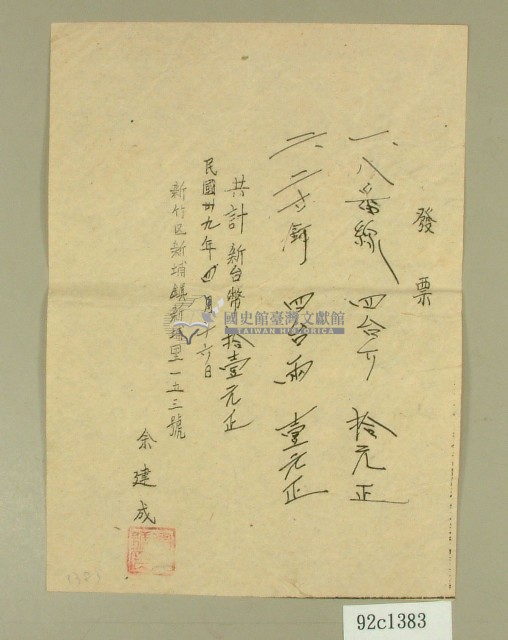 發票
一、八番線 四台斤 拾元正
二、二寸釘 四台兩 壹元正
共計新台幣拾壹元正
民國卅九年四月十六日
新竹區新埔鎮新埔里一五三號
余建成
國史館臺灣文獻館
TAIWAN HISTORICA
92c1383